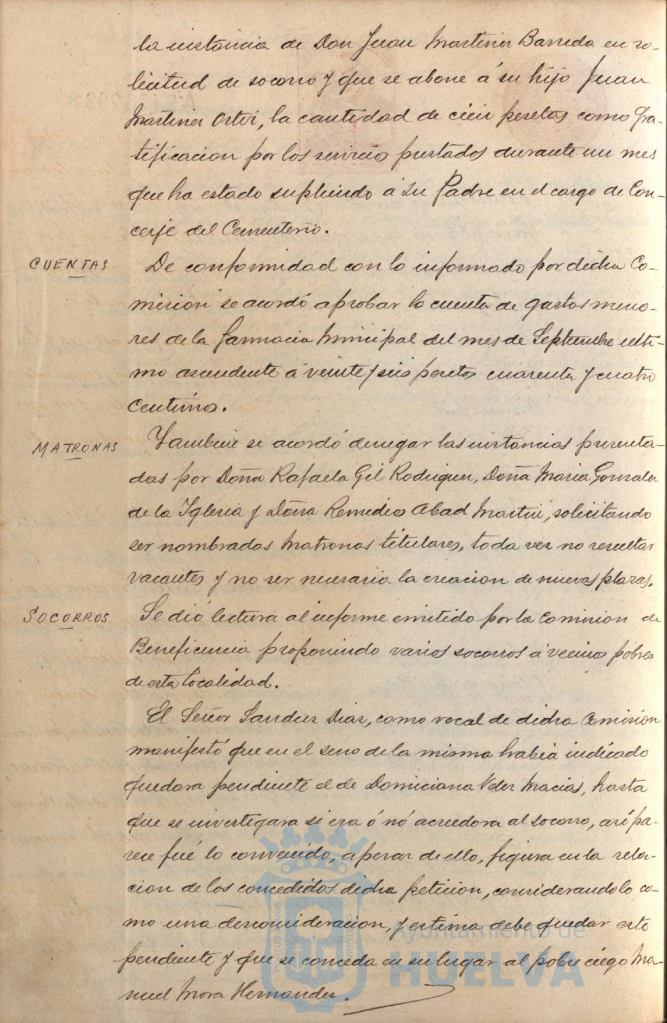 la instancia de Don Juan Martinez Barreda en so-
licitud de socorro y que se abone á su hijo Juan
Martinez Ortiz, la cantidad de cien pesetas como gra-
tificacion por los servicios prestados durante un mes
que ha estado supliendo á su Padre en el cargo de Con-
cerje del Cementerio.
CUENTAS De conformidad con lo informado por dicha Co-
mision se acordó aprobar la cuenta de gastos meno-
res de la farmacia Municipal del mes de Septiembre ulti-
mo ascendente á veinte y seis pesetas cuarenta y cuatro
centimos.
MATRONAS Tambien se acordó denegar las instancias presenta-
das por Doña Rafaela Gil Rodriguez, Doña Maria Gonzalez
de la Iglesia y Doña Remedios Abad Martin, solicitando
ser nombradas Matronas titulares, toda vez no resultar
vacantes y no ser necesaria la creacion de nuevas plazas.
SOCORROS Se dió lectura al informe emitido por la Comision de
Beneficencia proponiendo varios socorros á vecinos pobres
de esta localidad.
El Señor Sanchez Dias, como vocal de dicha Comision
manifestó que en el seno de la misma habia indicado
quedara pendiente el de Domiciana Macias, hasta
que se investigara si era ó nó acreedora al socorro, así pa-
rece fué lo convenido, apesar de ello, figura en la rela-
cion de los concedidos dicha peticion, considerandolo co-
mo una desconsideracion, y estima debe quedar esto
pendiente y que se conceda en su lugar al pobre ciego Ma-
nuel Mora Hernandez.
Ayuntamiento de
HUELVA